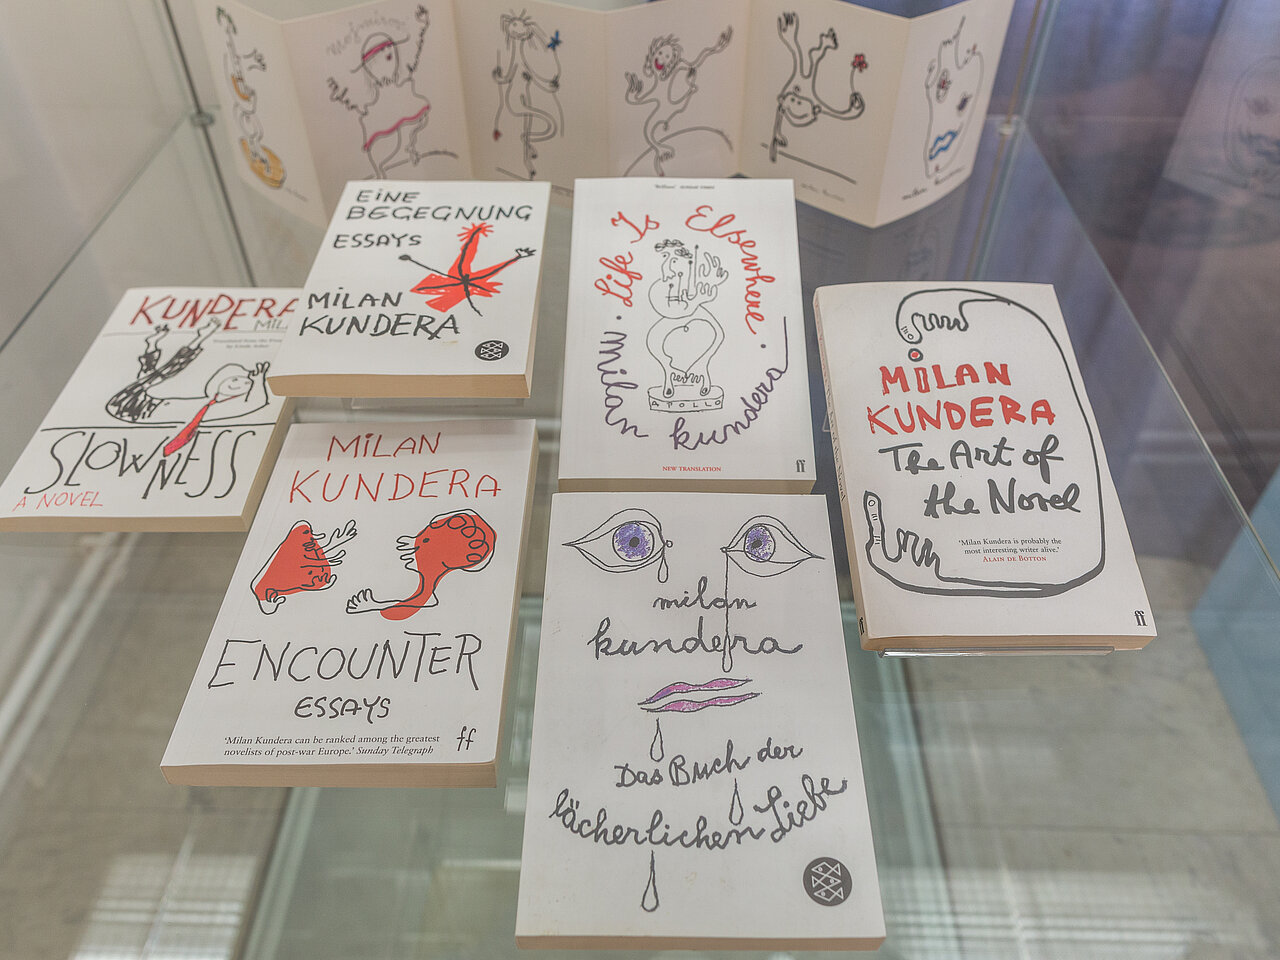 KUNDERA
MiL
SLOWNESS
A NOVEL
EiNE
BEGEGNUNG
ESSAYS
MiLAN
KUNDERA
Life Is Elsewhere
milan kundera
APOLLO
NEW TRANSLATION
ff
MiLAN
KUNDERA
The Art of
the Novel
'Milan Kundera is probably the
most interesting writer alive.'
ALAIN DE BOTTON
ff
MiLAN
KUNDERA
ENCOUNTER
ESSAYS
'Milan Kundera can be ranked among the greatest
novelists of post-war Europe.' Sunday Telegraph
ff
milan
kundera
Das Buch der
lächerlichen Liebe